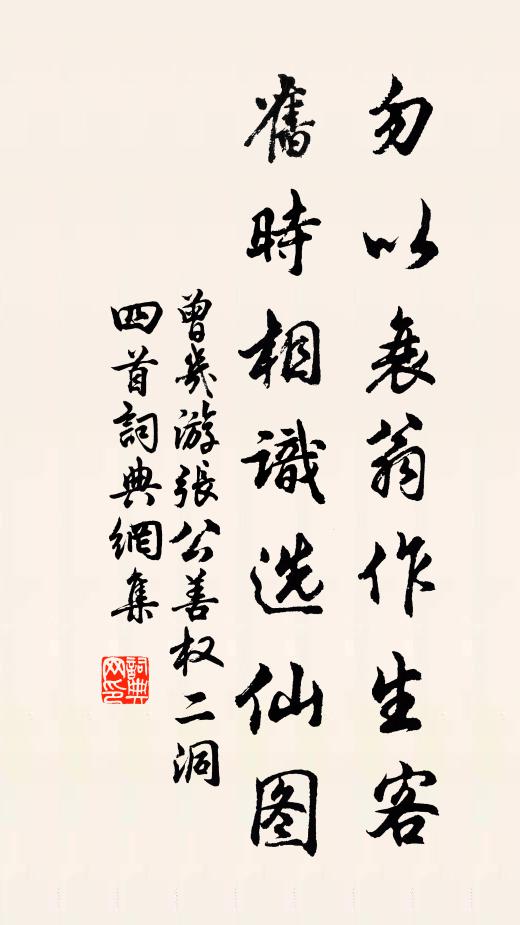 勿以衰翁作生客
舊時相識选仙图
曾幾游張公善权二洞
四首詞典網集
詞典网印